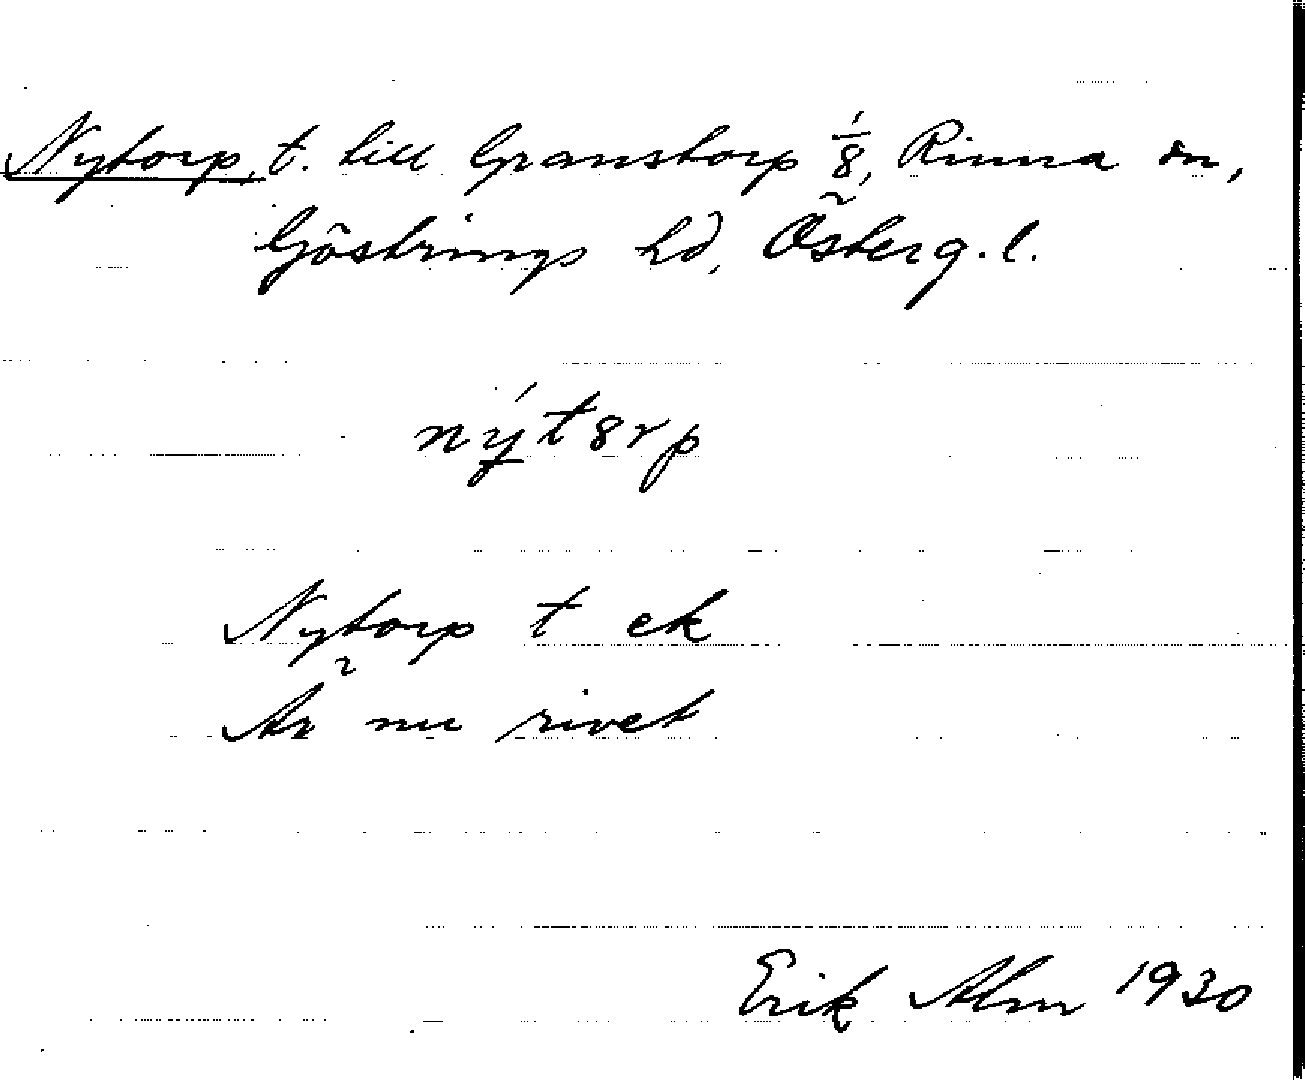 Nytorp, t. till Granstorp 1/8, Rinna sn,
Göstrings hd, Österg. l.
nýt8rp
Nytorp t ek
Är nu rivet
Erik Alm 1930